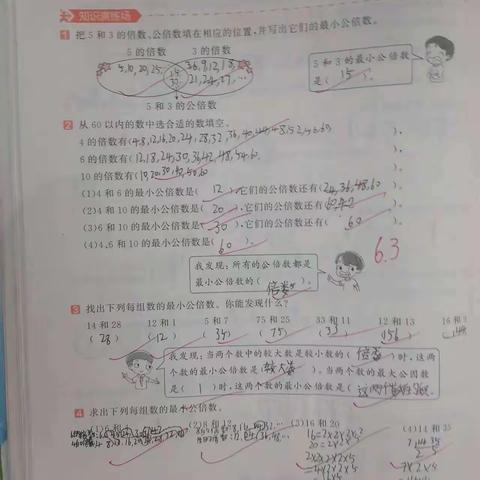 知识演练场
1 把 5 和 3 的倍数、公倍数填在相应的位置,并写出它们的最小公倍数。
5 的倍数 3 的倍数
5 和 3 的最小公倍数
是( 15 )。
5 和 3 的公倍数
2 从 60 以内的数中选合适的数填空。
4 的倍数有(4,8,12,16,20,24,28,32,36,40,44,48,52,56,60 )。
6 的倍数有(12,18,24,30,36,42,48,54,60 )。
10 的倍数有(10,20,30,40,50,60 )。
(1)4 和 6 的最小公倍数是( 12 ),它们的公倍数还有(24,36,48,60 )。
(2)4 和 10 的最小公倍数是( 20 ),它们的公倍数还有( )。
(3)6 和 10 的最小公倍数是( 30 ),它们的公倍数还有( 60 )。
(4)4、6 和 10 的最小公倍数是( 60 )。
6.3
我发现:所有的公倍数都是
最小公倍数的( 倍数 )。
3 找出下列每组数的最小公倍数。你能发现什么?
14 和 28 12 和 1 5 和 7 75 和 25 33 和 11 12 和 13 16 和
( 28 ) ( 12 ) ( 35 ) ( 75 ) ( 33 ) ( 156 ) 144
我发现:当两个数中的较大数是较小数的( 倍数 )时,这两
个数的最小公倍数是(较大数)。当两个数的最大公因数
是( 1 )时,这两个数的最小公倍数是( )。
4 求出下列每组数的最小公倍数。
(2)8 和 (3)16 和 20 (4)14 和 35
16=2×2×2×2
20=2×2×5
2×2×2×2×5
7×2×5